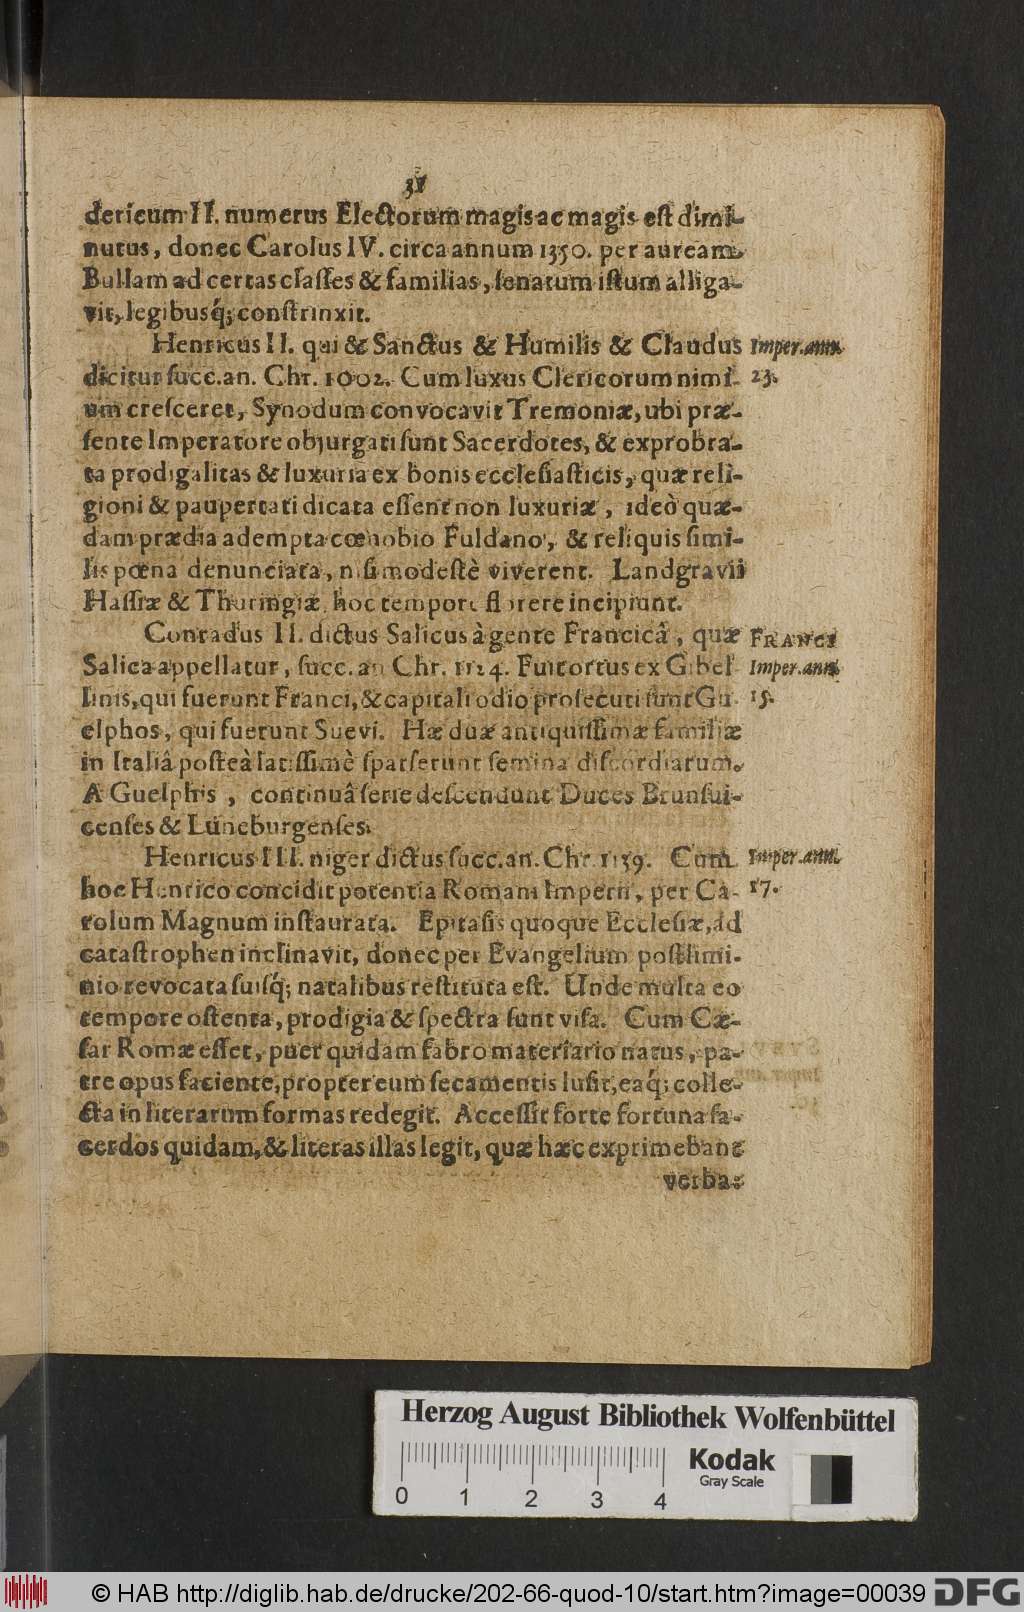 37
dericum II. numerus Electorum magis ac magis est dimi-
nutus, donec Carolus IV. circa annum 1350. per auream
Bullam ad certas claſſes & familias, ſenatum iſtum alliga-
vit, legibusq́; conſtrinxit.
Henricus II. qui & Sanctus & Humilis & Claudus
Imper. ann.
dicitur ſucc. an. Chr. 1002. Cum luxus Clericorum nimi-
23.
um creſceret, Synodum convocavit Tremoniæ, ubi præ-
ſente Imperatore objurgati ſunt Sacerdotes, & exprobra-
ta prodigalitas & luxuria ex bonis eccleſiaſticis, quæ reli-
gioni & paupertati dicata eſſent non luxuriæ, ideò quæ-
dam prædia adempta cœnobio Fuldano, & reliquis ſimi-
lis pœna denunciata, niſi modeſtè viverent. Landgravii
Haſſiæ & Thuringiæ hoc tempore florere incipiunt.
Conradus II. dictus Salicus à gente Francicâ, quæ
FRANCI
Salica appellatur, ſucc. an Chr. 1124. Fuit ortus ex Gibel-
Imper. ann.
linis, qui fuerunt Franci, & capitali odio proſecuti ſunt Gu-
15.
elphos, qui fuerunt Suevi. Hæ duæ antiquiſſimæ familiæ
in Italiâ poſteà latiſſimè ſparſerunt ſemina diſcordiarum.
A Guelphis, continuâ ſerie deſcendunt Duces Brunſui-
cenſes & Luneburgenſes.
Henricus III. niger dictus ſucc. an. Chr. 1139. Cum
Imper. ann.
hoc Henrico concidit potentia Romani Imperii, per Ca-
17.
rolum Magnum inſtaurata. Epitaſis quoque Eccleſiæ, ad
cataſtrophen inclinavit, donec per Evangelium poſtlimi-
nio revocata ſuisq́; natalibus reſtituta eſt. Unde multa eo
tempore oſtenta, prodigia & ſpectra ſunt viſa. Cum Cæ-
ſar Romæ eſſet, puer quidam fabro materiario natus, pa-
tre opus faciente, propter eum ſecamentis luſit, eaq́; colle-
cta in literarum formas redegit. Acceſſit forte fortuna ſa-
cerdos quidam, & literas illas legit, quæ hæc exprimebant
verba:
Herzog August Bibliothek Wolfenbüttel
Kodak
Gray Scale
0 1 2 3 4
© HAB http://diglib.hab.de/drucke/202-66-quod-10/start.htm?image=00039
DFG